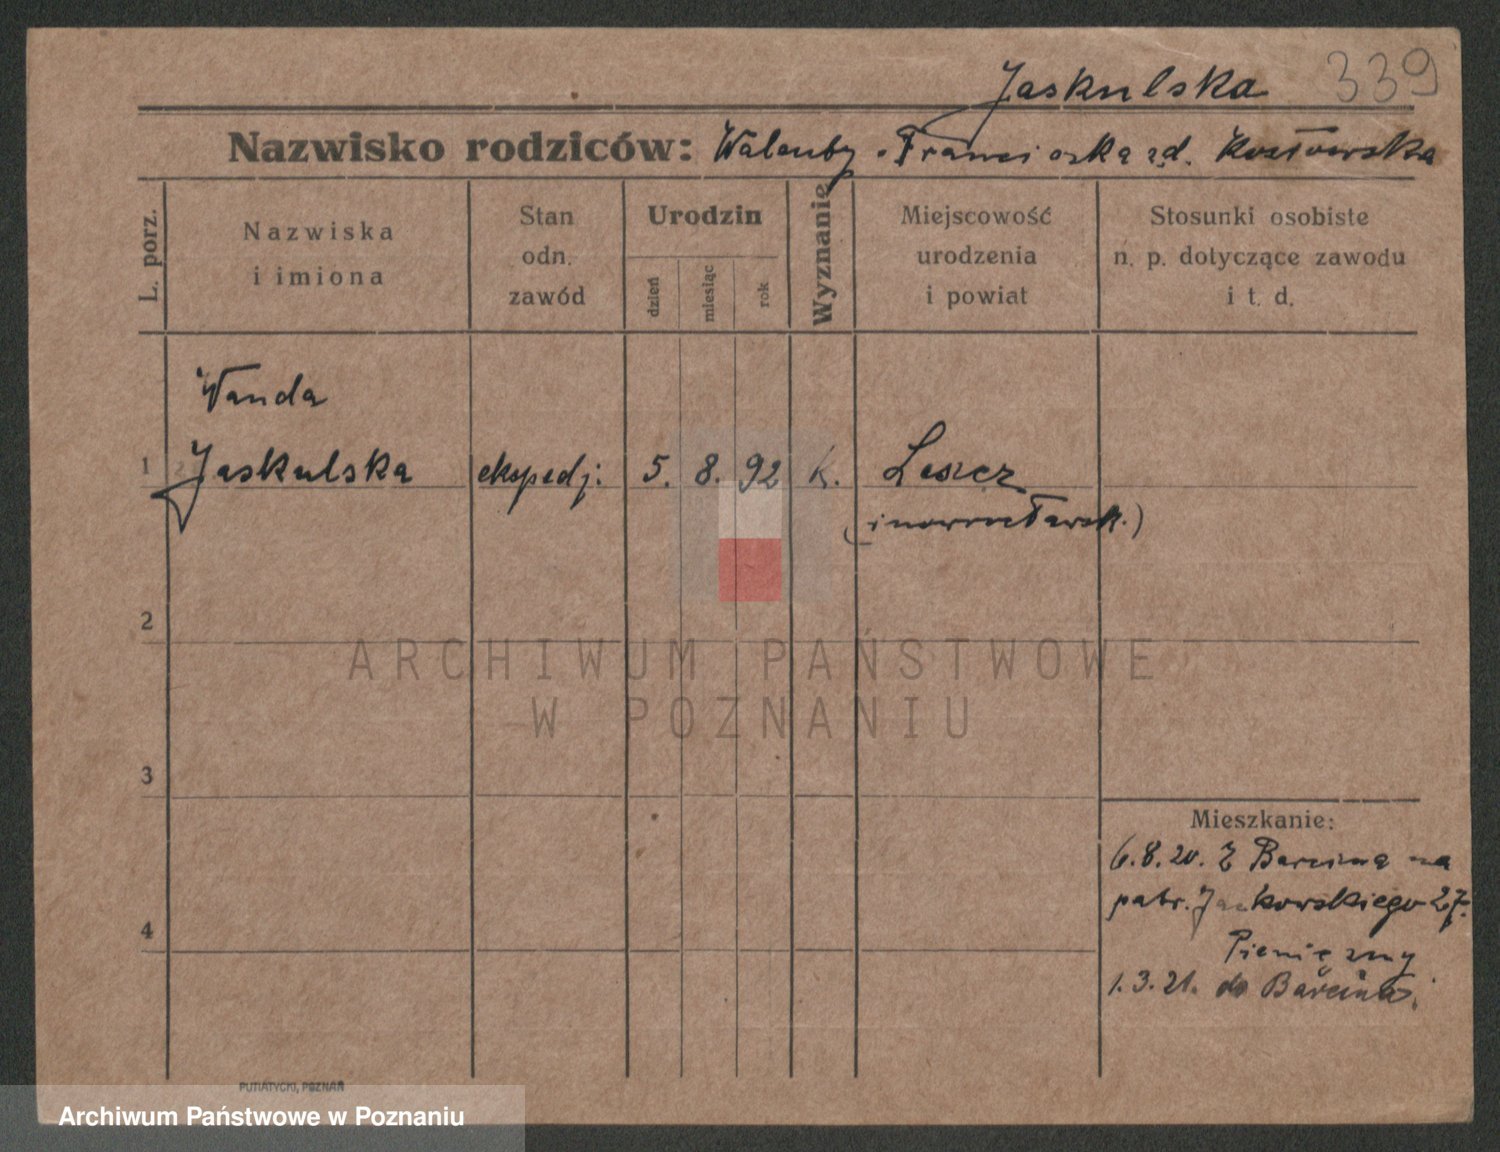 Jaskulska 339
Nazwisko rodziców: Walenty . Franciszka zd. Kozłowska
L. porz.
Nazwiska
i imiona
Stan
odn.
zawód
Urodzin
dzień
miesiąc
rok
Wyznanie
Miejscowość
urodzenia
i powiat
Stosunki osobiste
n. p. dotyczące zawodu
i t. d.
Wanda
1 Jaskulska ekspedj. 5. 8. 92 k. Leszcz
(inowrocławsk.)
2
ARCHIWUM PAŃSTWOWE
W POZNANIU
3
Mieszkanie:
6.8.20. Z Barcina na
patr. Jackowskiego 27.
4
Pieniężny
1.3.21. do Barcina
PUTIATYCKI, POZNAŃ
Archiwum Państwowe w Poznaniu